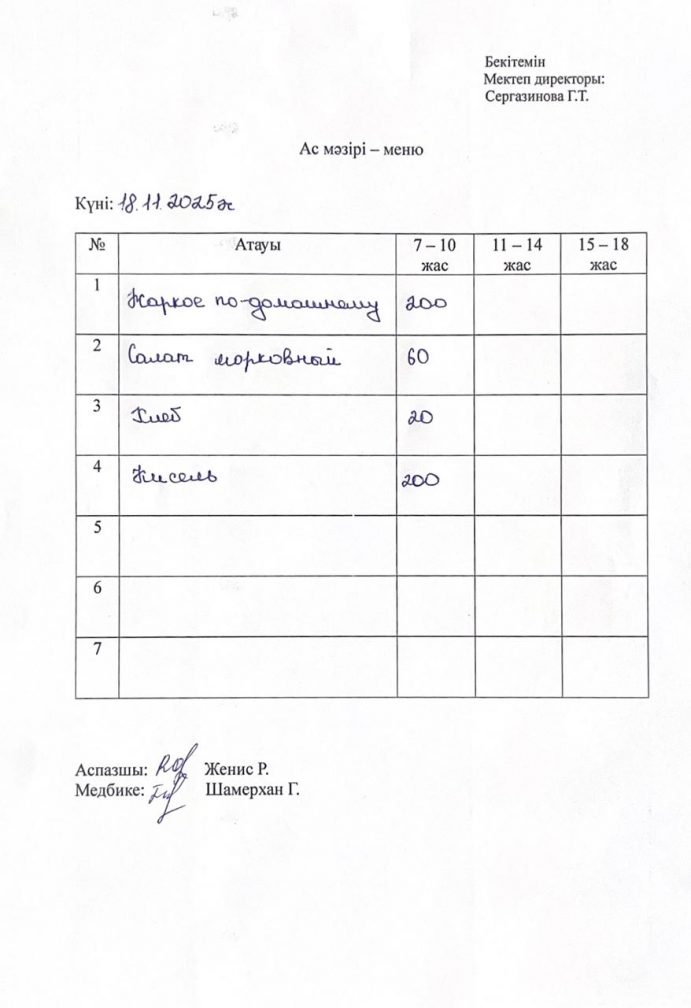 Бекітемін
Мектеп директоры:
Сергазинова Г.Т.
Ас мәзірі – меню
Күні: 18.11.2025ж
№ Атауы 7 – 10 жас 11 – 14 жас 15 – 18 жас
1 Жаркое по-домашнему 200
2 Салат морковный 60
3 Хлеб 20
4 Кисель 200
5
6
7
Аспазшы: Женис Р.
Медбике: Шамерхан Г.